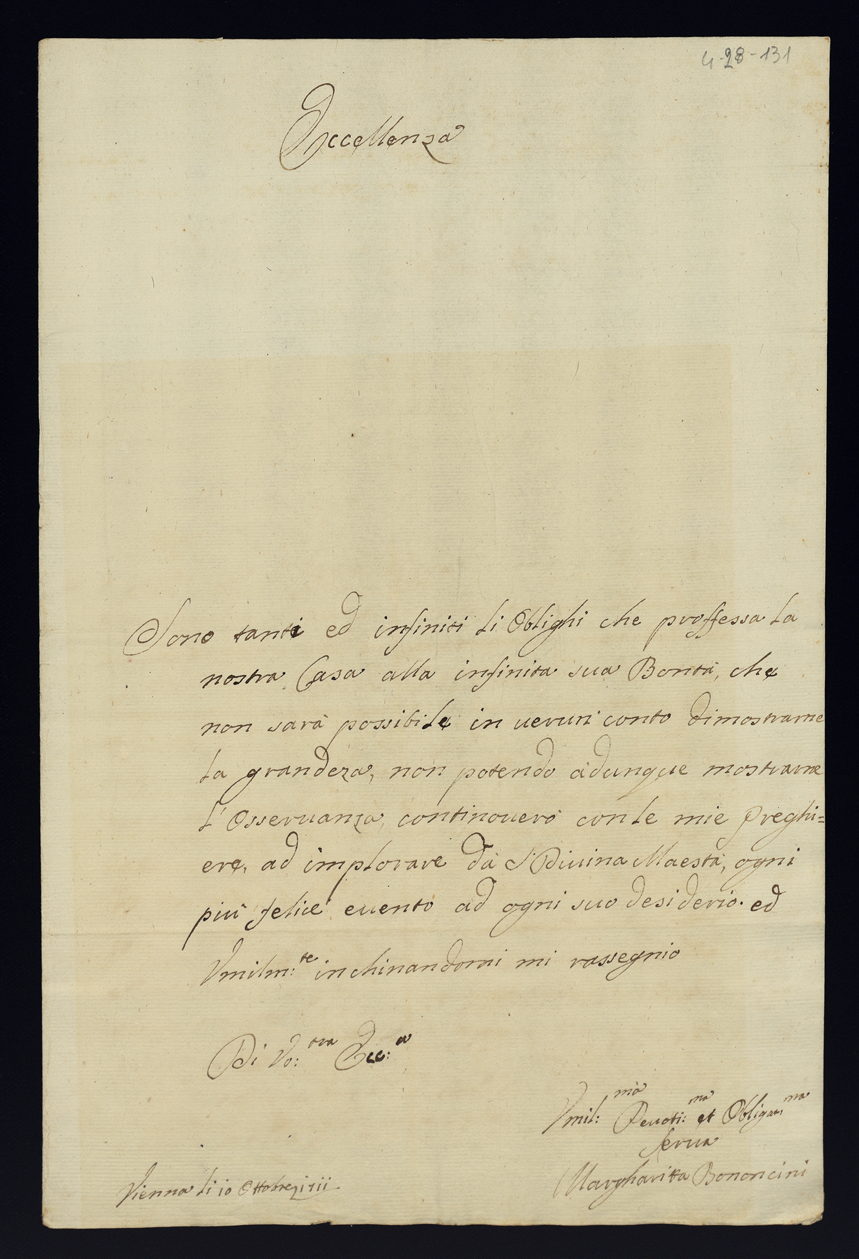 4-28-131
Eccellenza
Sono tanti ed infiniti li Oblighi che proffessa la
nostra Casa alla infinita sua Bontà, che
non sarà possibile in uerun conto dimostrarne
la grandeza, non potendo adunque mostrarne
l'Osseruanza, continouerò con le mie preghi=
ere, ad implorare dà S Diuina Maestà, ogni
più felice euento ad ogni suo desiderio. ed
Vmilm:te inchinandomi mi rassegnio
Di Vo:stra Ecc:a
Vmil:ma Deuoti:ma et Obligati:ma
serua
Margharitta Bononcini
Vienna li 10 Ottobre 1711